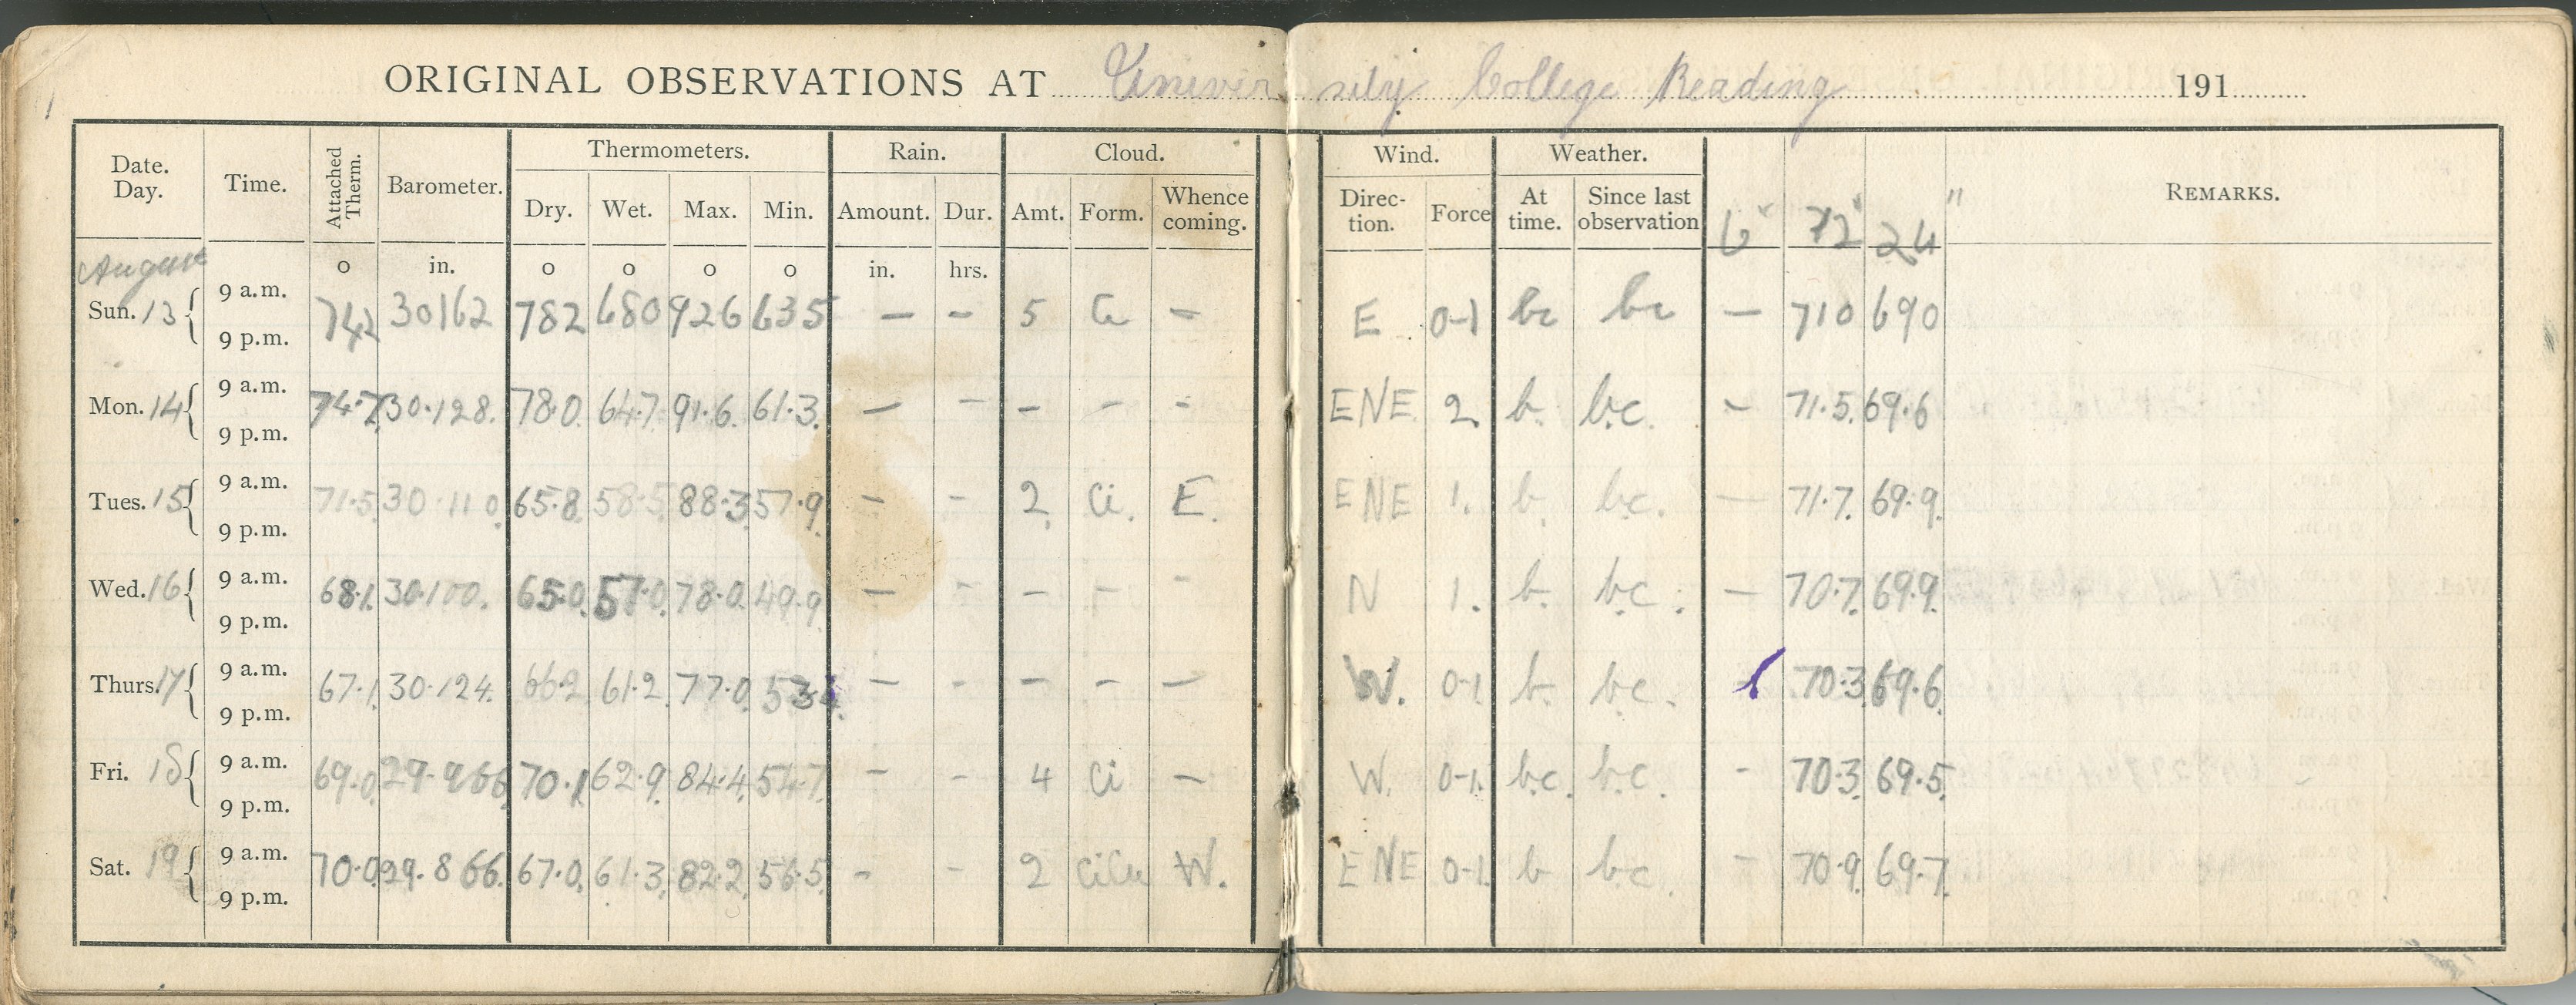 ORIGINAL OBSERVATIONS AT University College Reading 191
Date. Day. Time. Attached Therm. Barometer. Thermometers. Rain. Cloud. Wind. Weather. REMARKS.
Dry. Wet. Max. Min. Amount. Dur. Amt. Form. Whence coming. Direc- tion. Force At time. Since last observation 6" 72" 24"
August o in. o o o o in. hrs.
Sun. 13 9 a.m. 742 30162 782 680 926 635 — — 5 Ci — E 0-1 bc bc — 710 690
9 p.m.
Mon. 14 9 a.m. 74.7 30.128. 78.0. 64.7 91.6. 61.3. — — — — — ENE 2. b. bc. — 71.5. 69.6
9 p.m.
Tues. 15 9 a.m. 71.5 30.110. 65.8. 58.5 88.3 57.9. — — 2. Ci. E. ENE 1. b. bc. — 71.7. 69.9.
9 p.m.
Wed. 16 9 a.m. 68.1. 30.100. 65.0. 57.0. 78.0. 49.9. — — — — — N 1. b. bc. — 70.7. 69.9.
9 p.m.
Thurs. 17 9 a.m. 67.1. 30.124. 66.2 61.2. 77.0. — — — — — W. 0-1. b. bc. 70.3. 69.6.
9 p.m.
Fri. 18 9 a.m. 69.0. 70.1 62.9. 84.4. 54.7. — — 4 Ci — W. 0-1. bc. bc. — 70.3. 69.5.
9 p.m.
Sat. 19 9 a.m. 70.0. 29.866. 67.0. 61.3. 82.2. 56.5. - - 2 CiCu W. ENE 0-1. b bc. - 70.9. 69.7.
9 p.m.